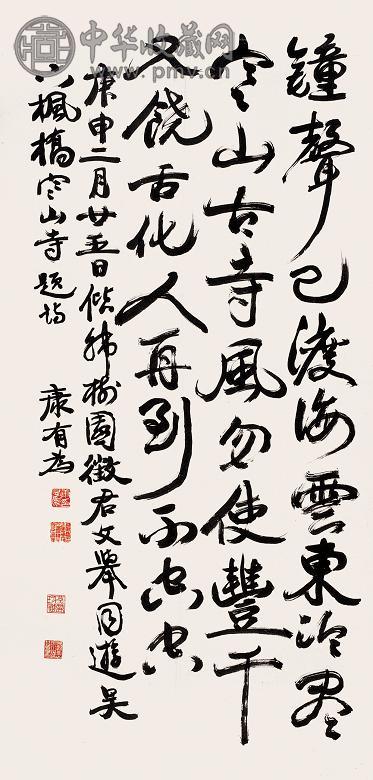 中华收藏网
www.pmv.cn
鐘聲已渡海雲東冷盡
寒山古寺風勿使豐干
又饒舌化人再到不空空
庚申二月廿五日偕韓樹園徵君文舉同遊吳
門楓橋寒山寺題詩 康有為